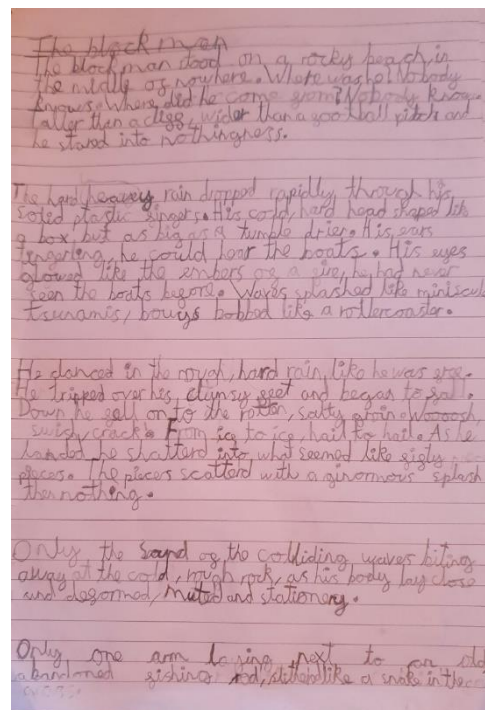 The block man
The block man stood on a rocky beach, in
the middle of nowhere. Where was he? Nobody
knows. Where did he come from? Nobody knows
Taller then a cliff, wider than a football pitch and
he stared into nothingness.
The hard heavery rain dropped rapidly through his
soled plastic fingers. His cold, hard head shaped like
a box but as big as a tumple drier. His ears
he could hear the boats. His eyes
glowed like the embers of a fire, he had never
seen the boats before. Waves splashed like miniscul
tsunamis, bouys bobbed like a rollercoaster.
He danced in the rough, hard rain, like he was free.
He tripped over his clumsy feet and began to fall.
Down he fell on to the rotten, salty groine. Woooosh,
swish, crack! From ice to ice, hail to hail. As he
landed he shatterd into what seemed like fifty
pieces. The pieces scatterd with a ginormous splash
then nothing.
Only the sound of the colliding waves biting
away at the cold, rough rock, as his body lay close
and deformed, muted and stationery.
Only one arm laying next to an old
abandoned fishing rod, like a snake in the